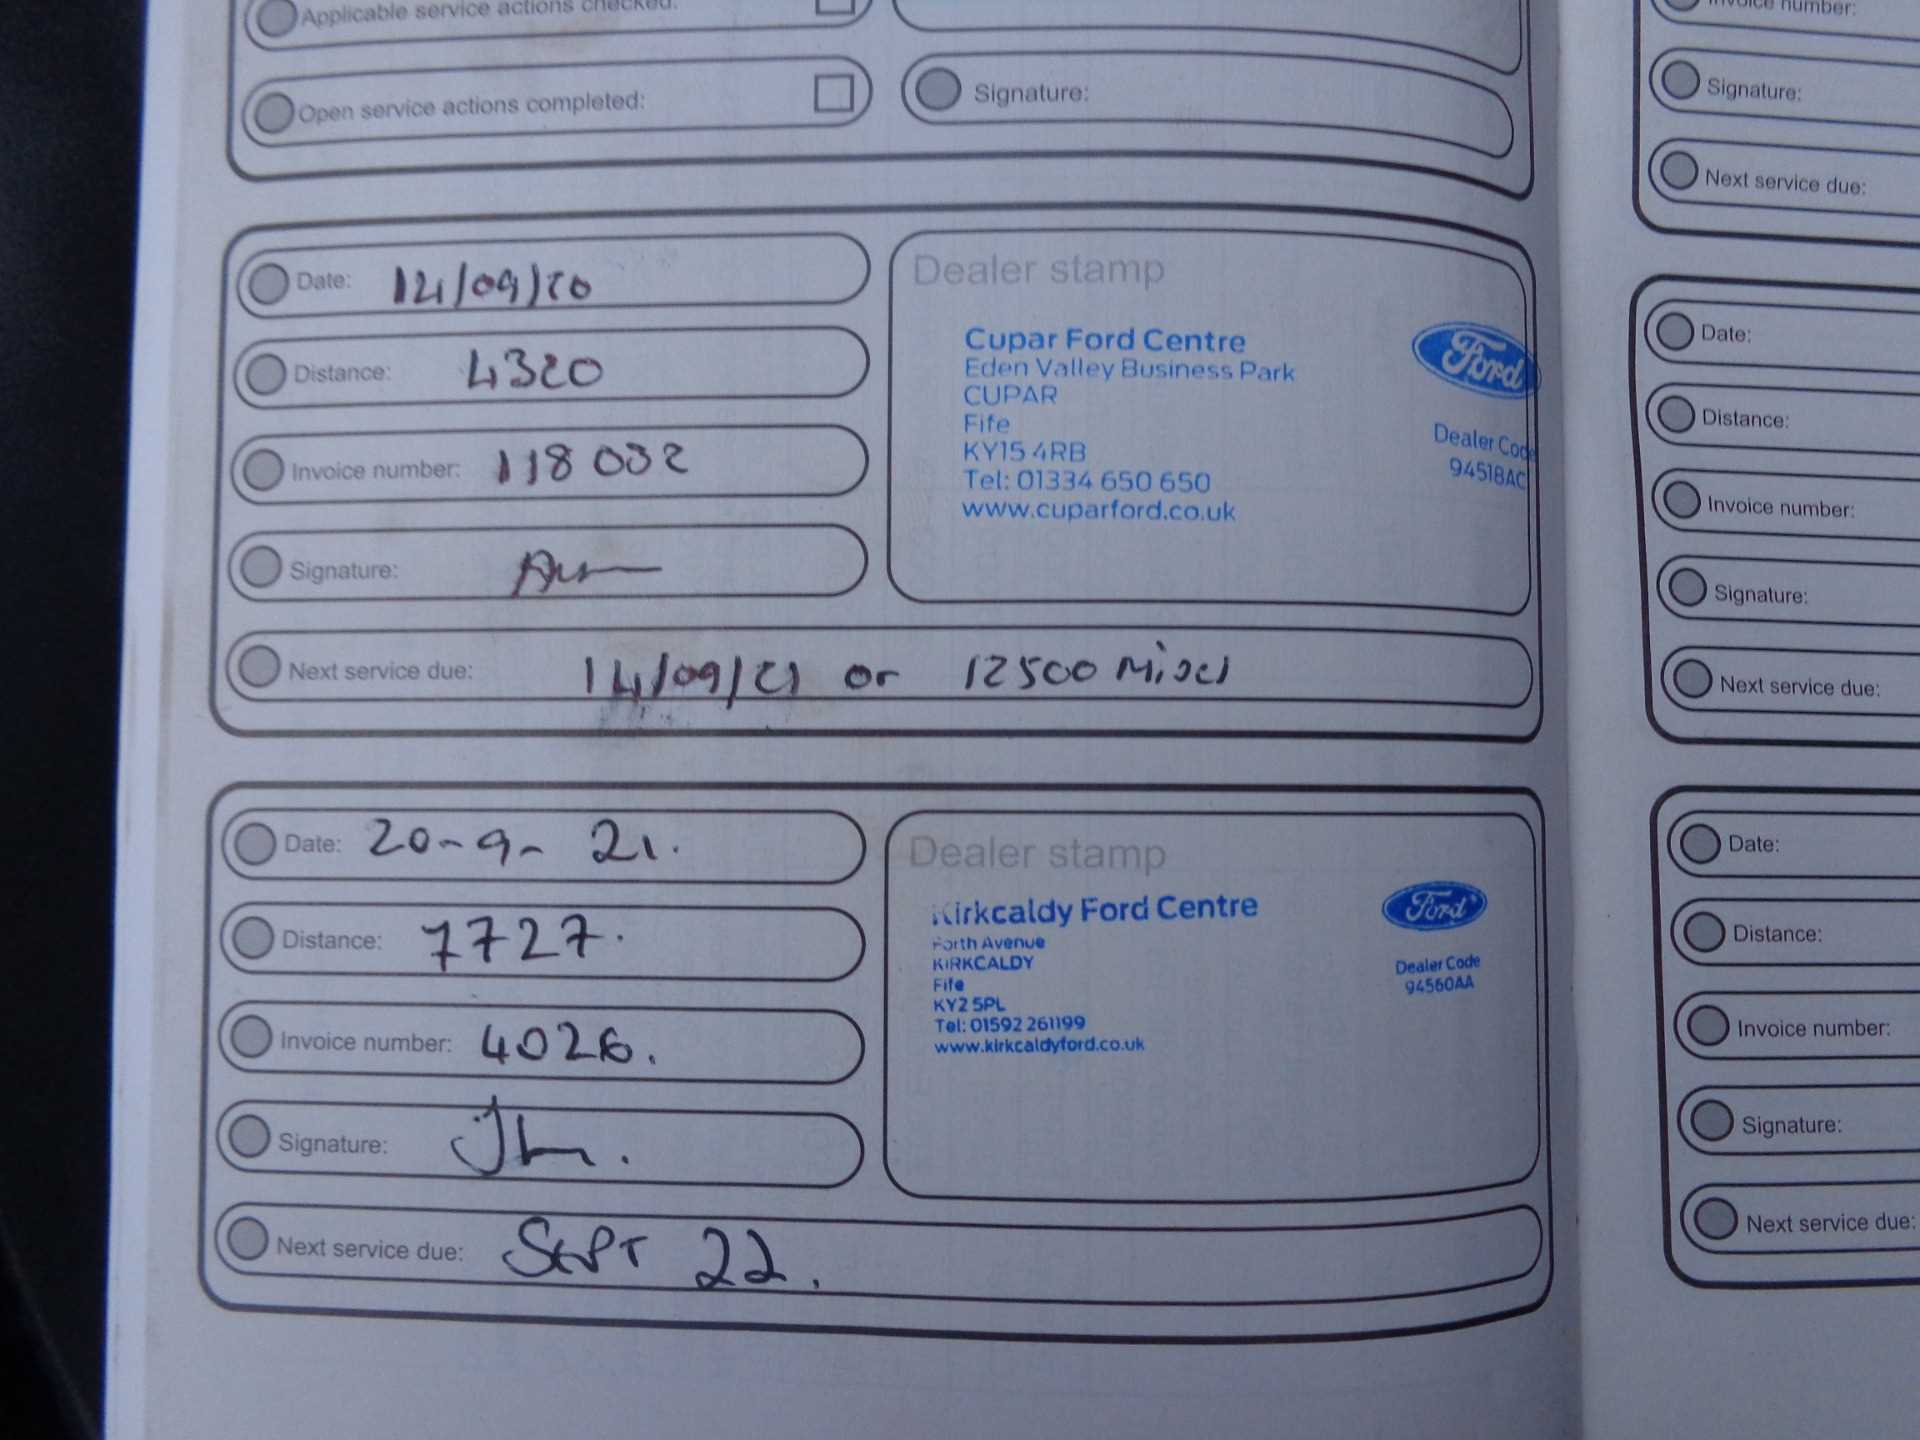 Applicable service actions checked:
Open service actions completed:
Signature:
Date: 14/09/20
Distance: 4320
Invoice number: 118032
Signature:
Next service due: 14/09/21 or 12500 Miles
Dealer stamp
Cupar Ford Centre
Eden Valley Business Park
CUPAR
Fife
KY15 4RB
Tel: 01334 650 650
www.cuparford.co.uk
Ford
Dealer Code
94518AC
Date: 20-9-21.
Distance: 7727.
Invoice number: 4026.
Signature:
Next service due: SEPT 22.
Dealer stamp
Kirkcaldy Ford Centre
Forth Avenue
KIRKCALDY
Fife
KY2 5PL
Tel: 01592 261199
www.kirkcaldyford.co.uk
Ford
Dealer Code
94560AA
Invoice number:
Signature:
Next service due:
Date:
Distance:
Invoice number:
Signature:
Next service due:
Date:
Distance:
Invoice number:
Signature:
Next service due: